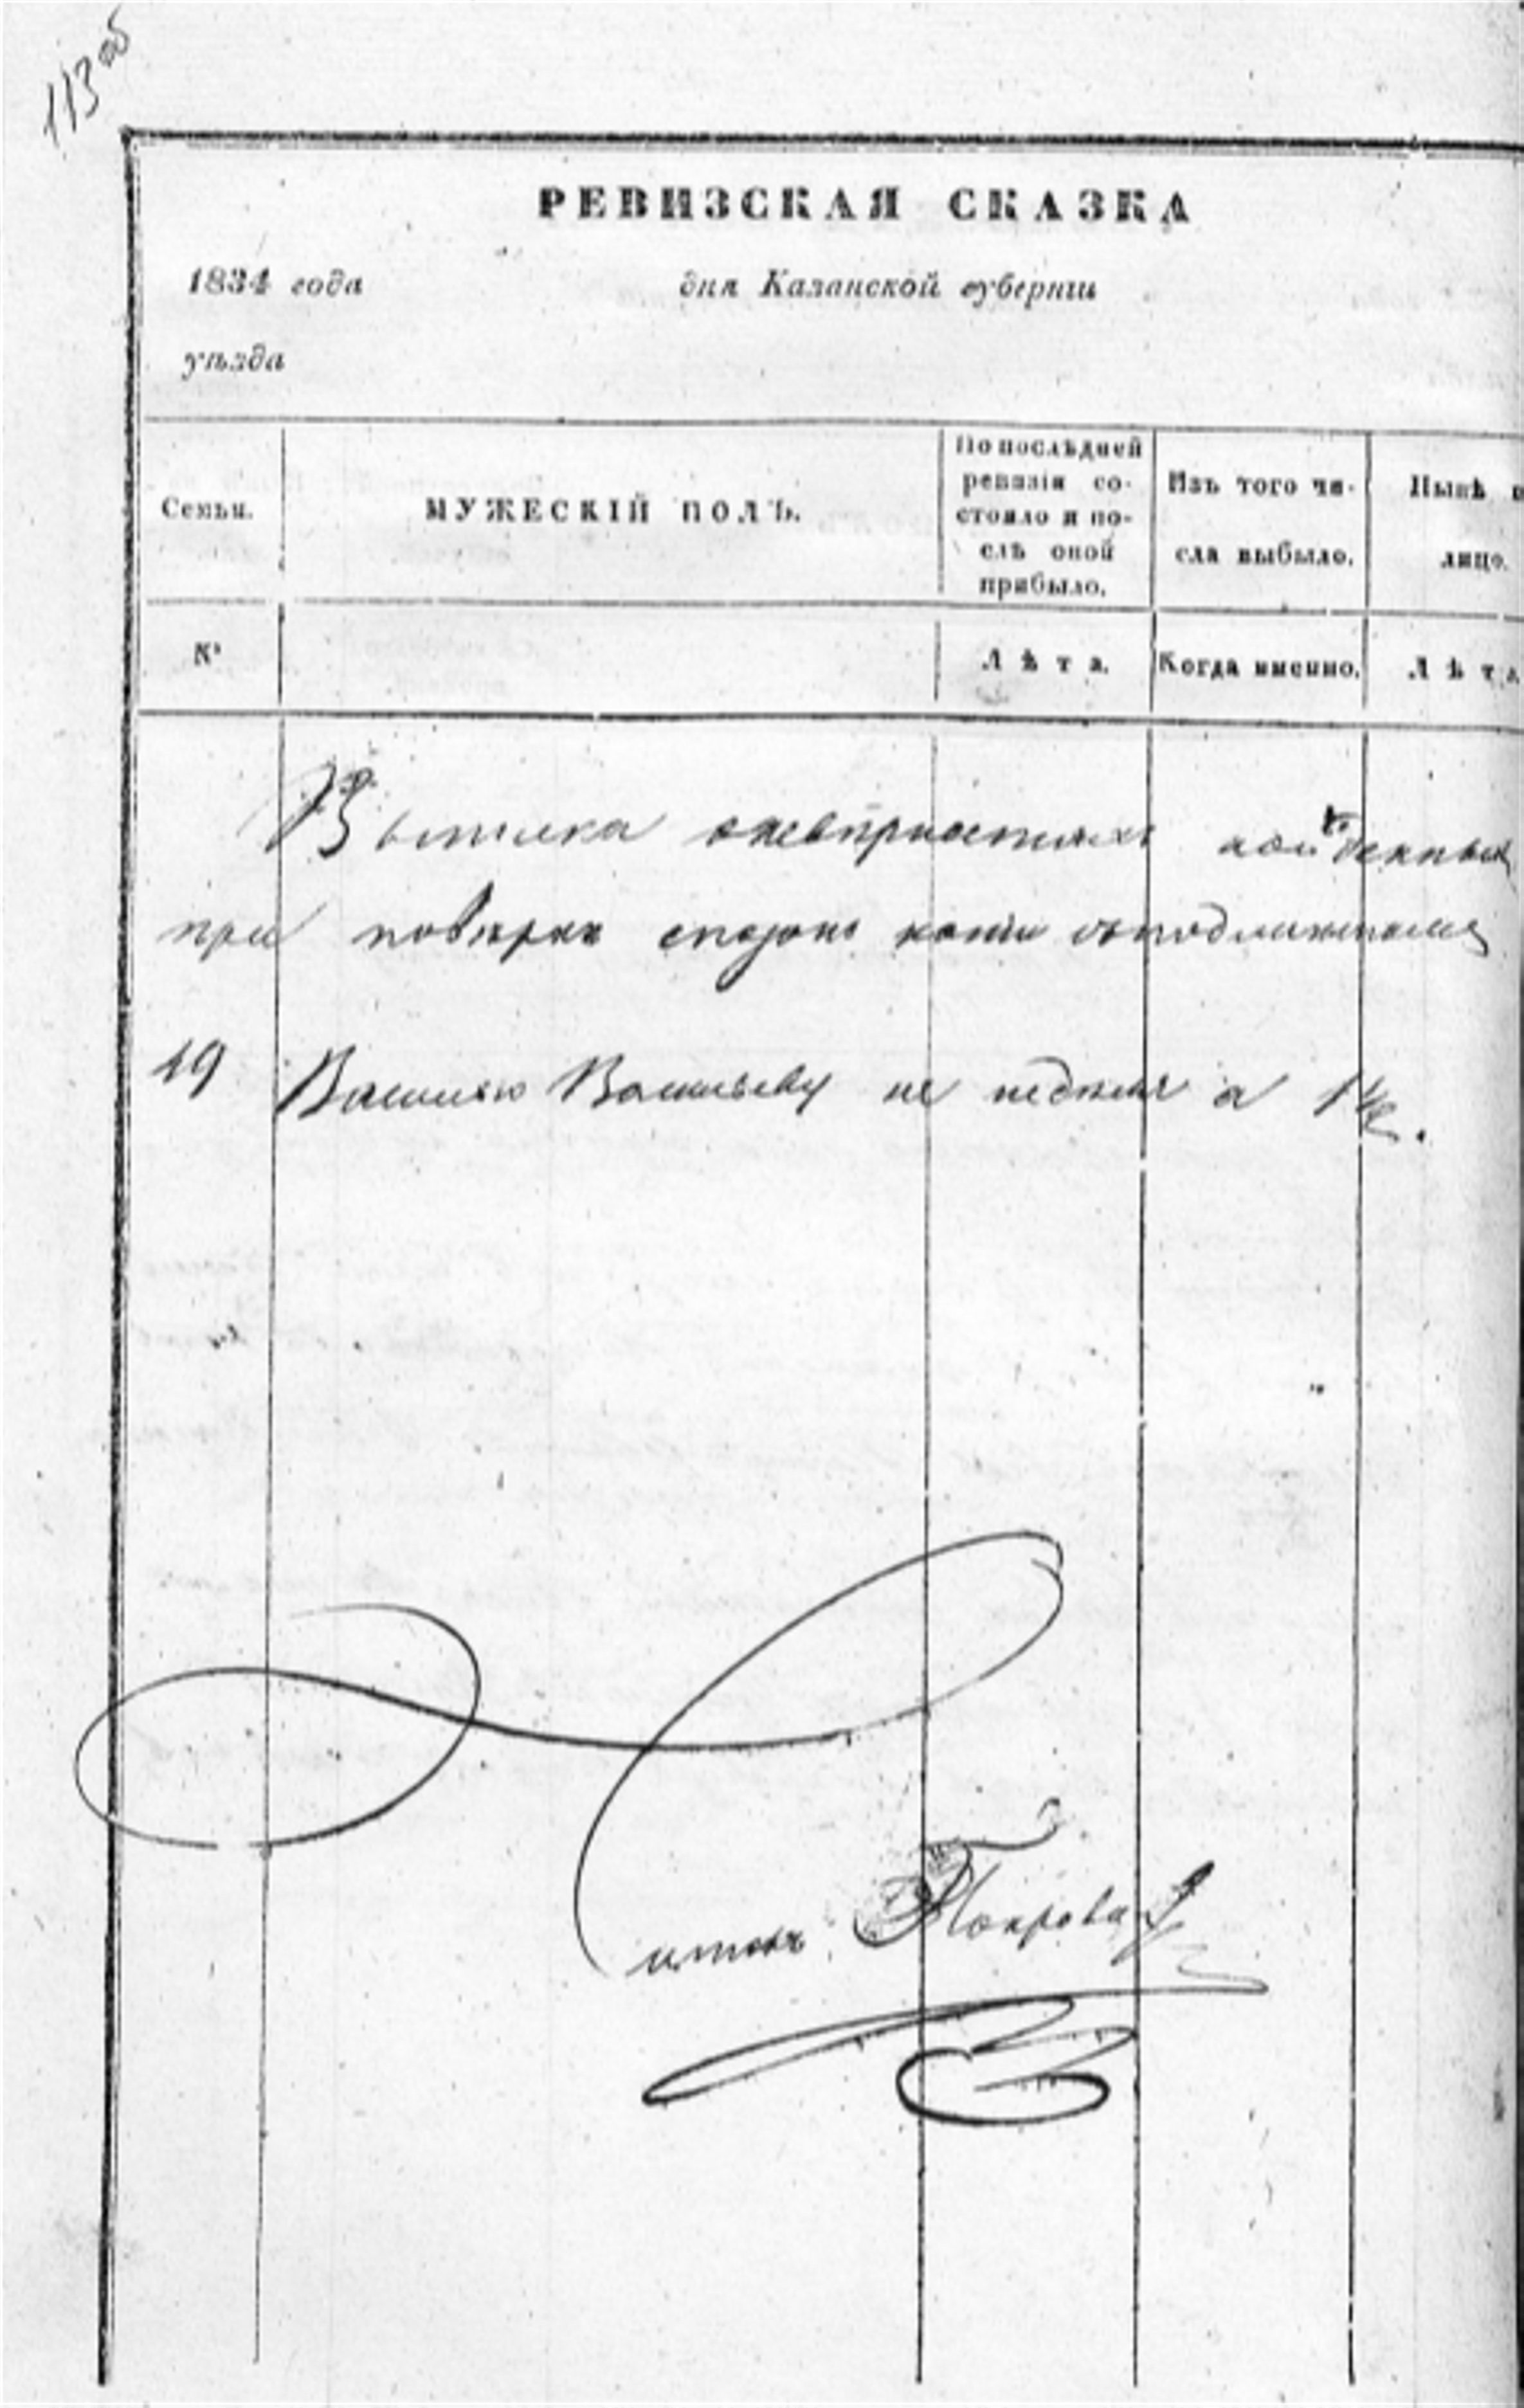 113 об
РЕВИЗСКАЯ СКАЗКА
1834 года дня Казанской губерніи
уѣзда
Семьи. МУЖЕСКІЙ ПОЛЪ. По послѣдней ревизіи со- стояло и по- слѣ оной прибыло. Изъ того чи- сла выбыло. Нынѣ лицо.
№ Лѣта. Когда именно. Лѣта
Выписка
при повѣрке копіи
19 Василью Васильеву не недѣля а 1 1/2.
Покровск